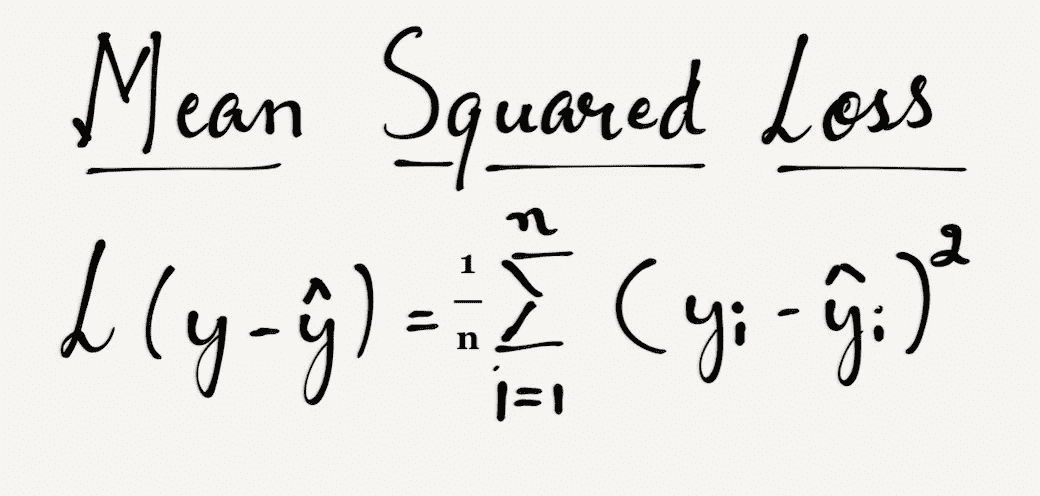 Mean Squared Loss
L(y-ŷ) = 1/n n∑i=1 (yi - ŷi)²